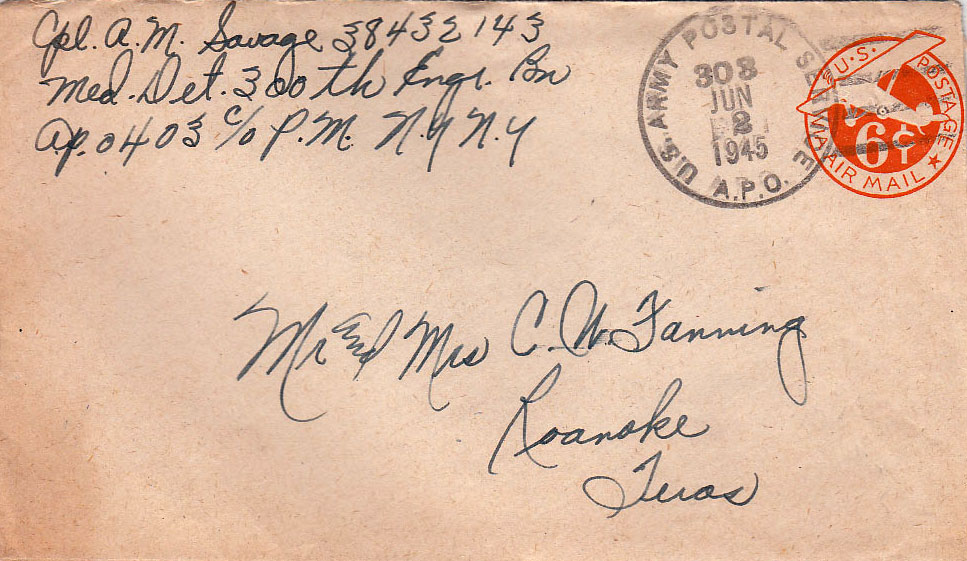 Cpl. A.M. Savage 38432143
Med. Det. 300th Engr. Bn
A.P.O 403 c/o P.M. N.Y N.Y
U.S. ARMY POSTAL SERVICE
303
JUN
2
1945
A.P.O.
U.S. POSTAGE
6¢
VIA AIR MAIL
Mr and Mrs C. W. Fanning
Roanoke
Texas